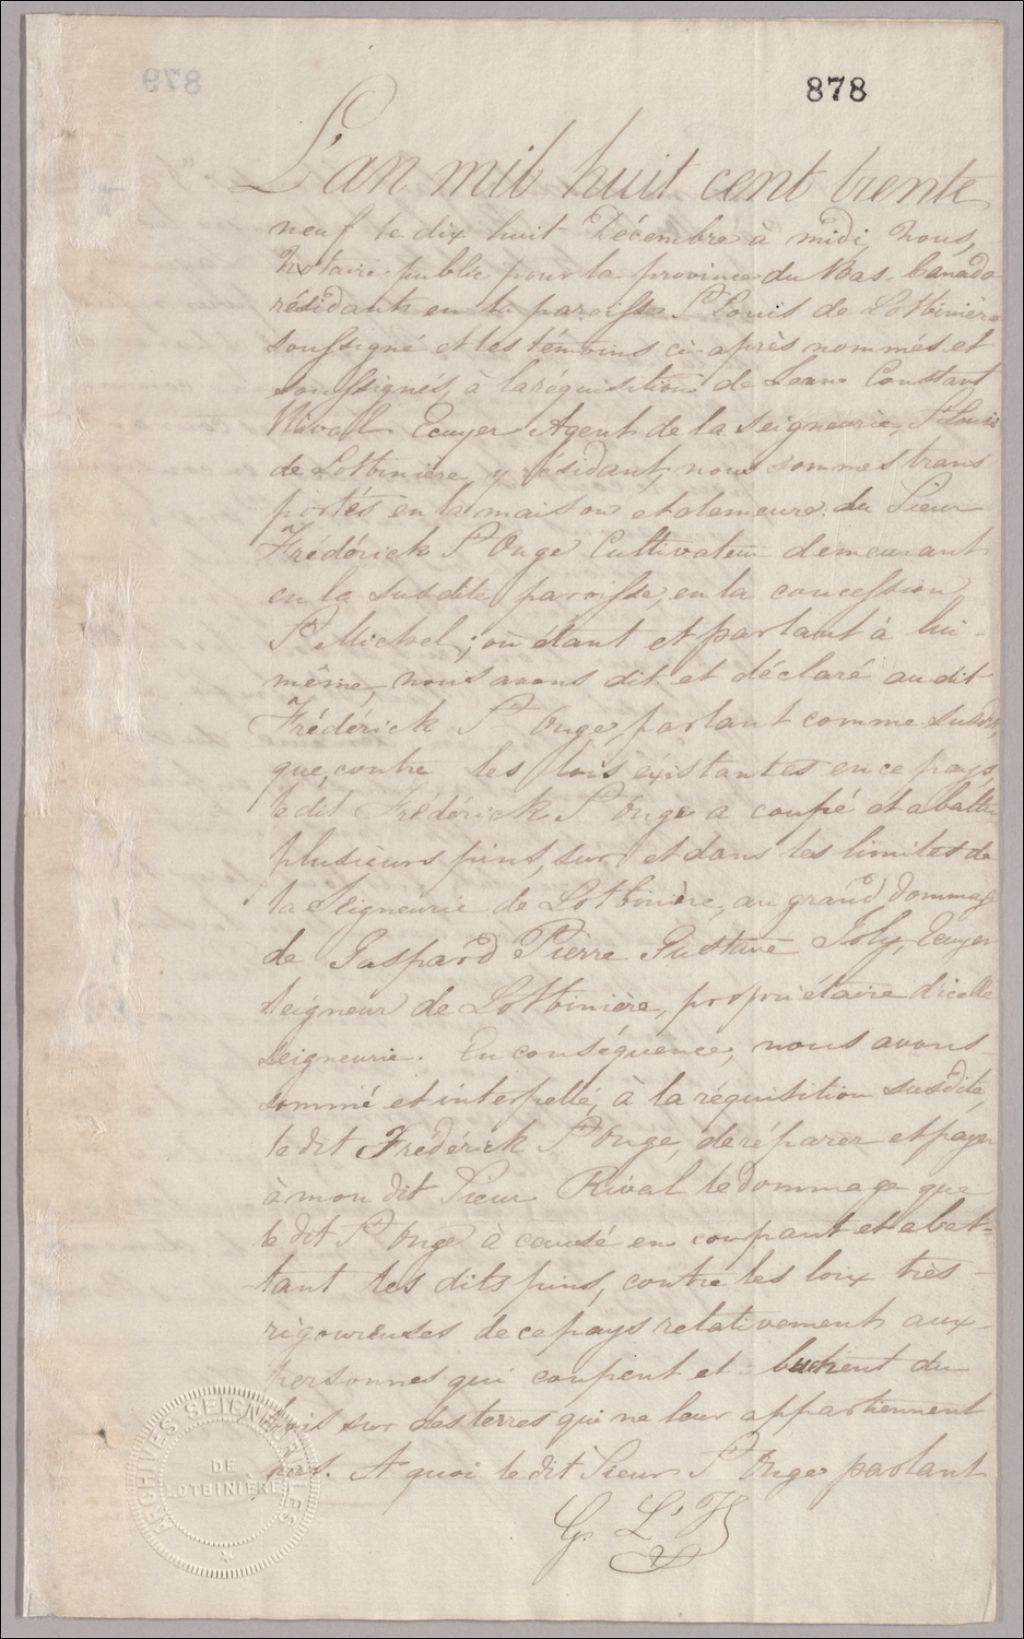 878
L'an mil huit cent trente
neuf le dix huit Décembre à midi, Nous,
Notaire public pour la province du Bas-Canada
résidant en la paroisse St Louis de Lotbinière
soussigné et les témoins ci-après nommés et
soussignés, à la réquisition de Leane Constant
Rival Ecuyer Agent de la seigneurie, St Louis
de Lotbinière, y résidant, nous sommes trans
portés en la maison et demeure du Sieur
Frédérick St Onge Cultivateur demeurant
en la susdite paroisse, en la concession
St Michel ; ou étant et parlant à lui-
même, nous avons dit et déclaré au dit
Frédérick St Onge parlant comme susdit,
que, contre les lois éxistantes en ce pays,
le dit Frédérick St Onge a coupé et abattu
plusieurs pins, sur et dans les limites de
la Seigneurie de Lotbinière, au grand dommage
de Gaspard Pierre Gustave Joly, Ecuyer
seigneur de Lotbinière, propriétaire d'icelle
seigneurie. En conséquence, nous avons
sommé et interpellé, à la réquisition susdite,
le dit Frédérick St Onge, de réparer et payer
à mon dit Sieur Rival le dommage que
le dit St Onge à causé en coupant et abat-
tant les dits pins, contre les loix très
rigoureuses de ce pays relativement aux
personnes qui coupent et buchent du
bois sur des terres qui ne leur appartiennent
pas. A quoi le dit Sieur St Onge parlant
G. L'H
ARCHIVES SEIGNEURIALES
DE
LOTBINIÈRE
879